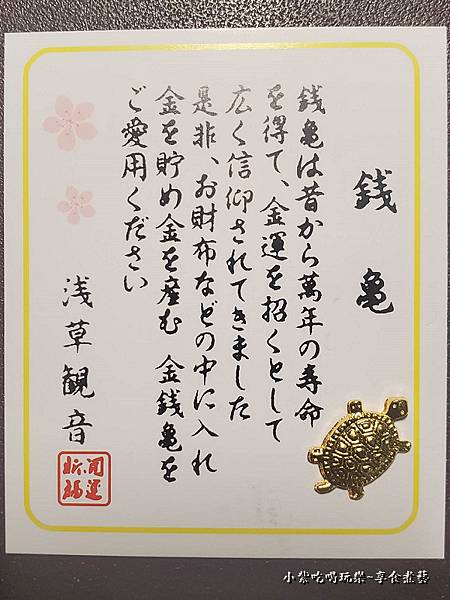 銭亀
銭亀は昔から萬年の寿命
を得て、金運を招くとして
広く信仰されてきました
是非、お財布などの中に入れ
金を貯め金を産む 金銭亀を
ご愛用ください
浅草観音
開運
招福
小紫吃喝玩樂-享食煮藝